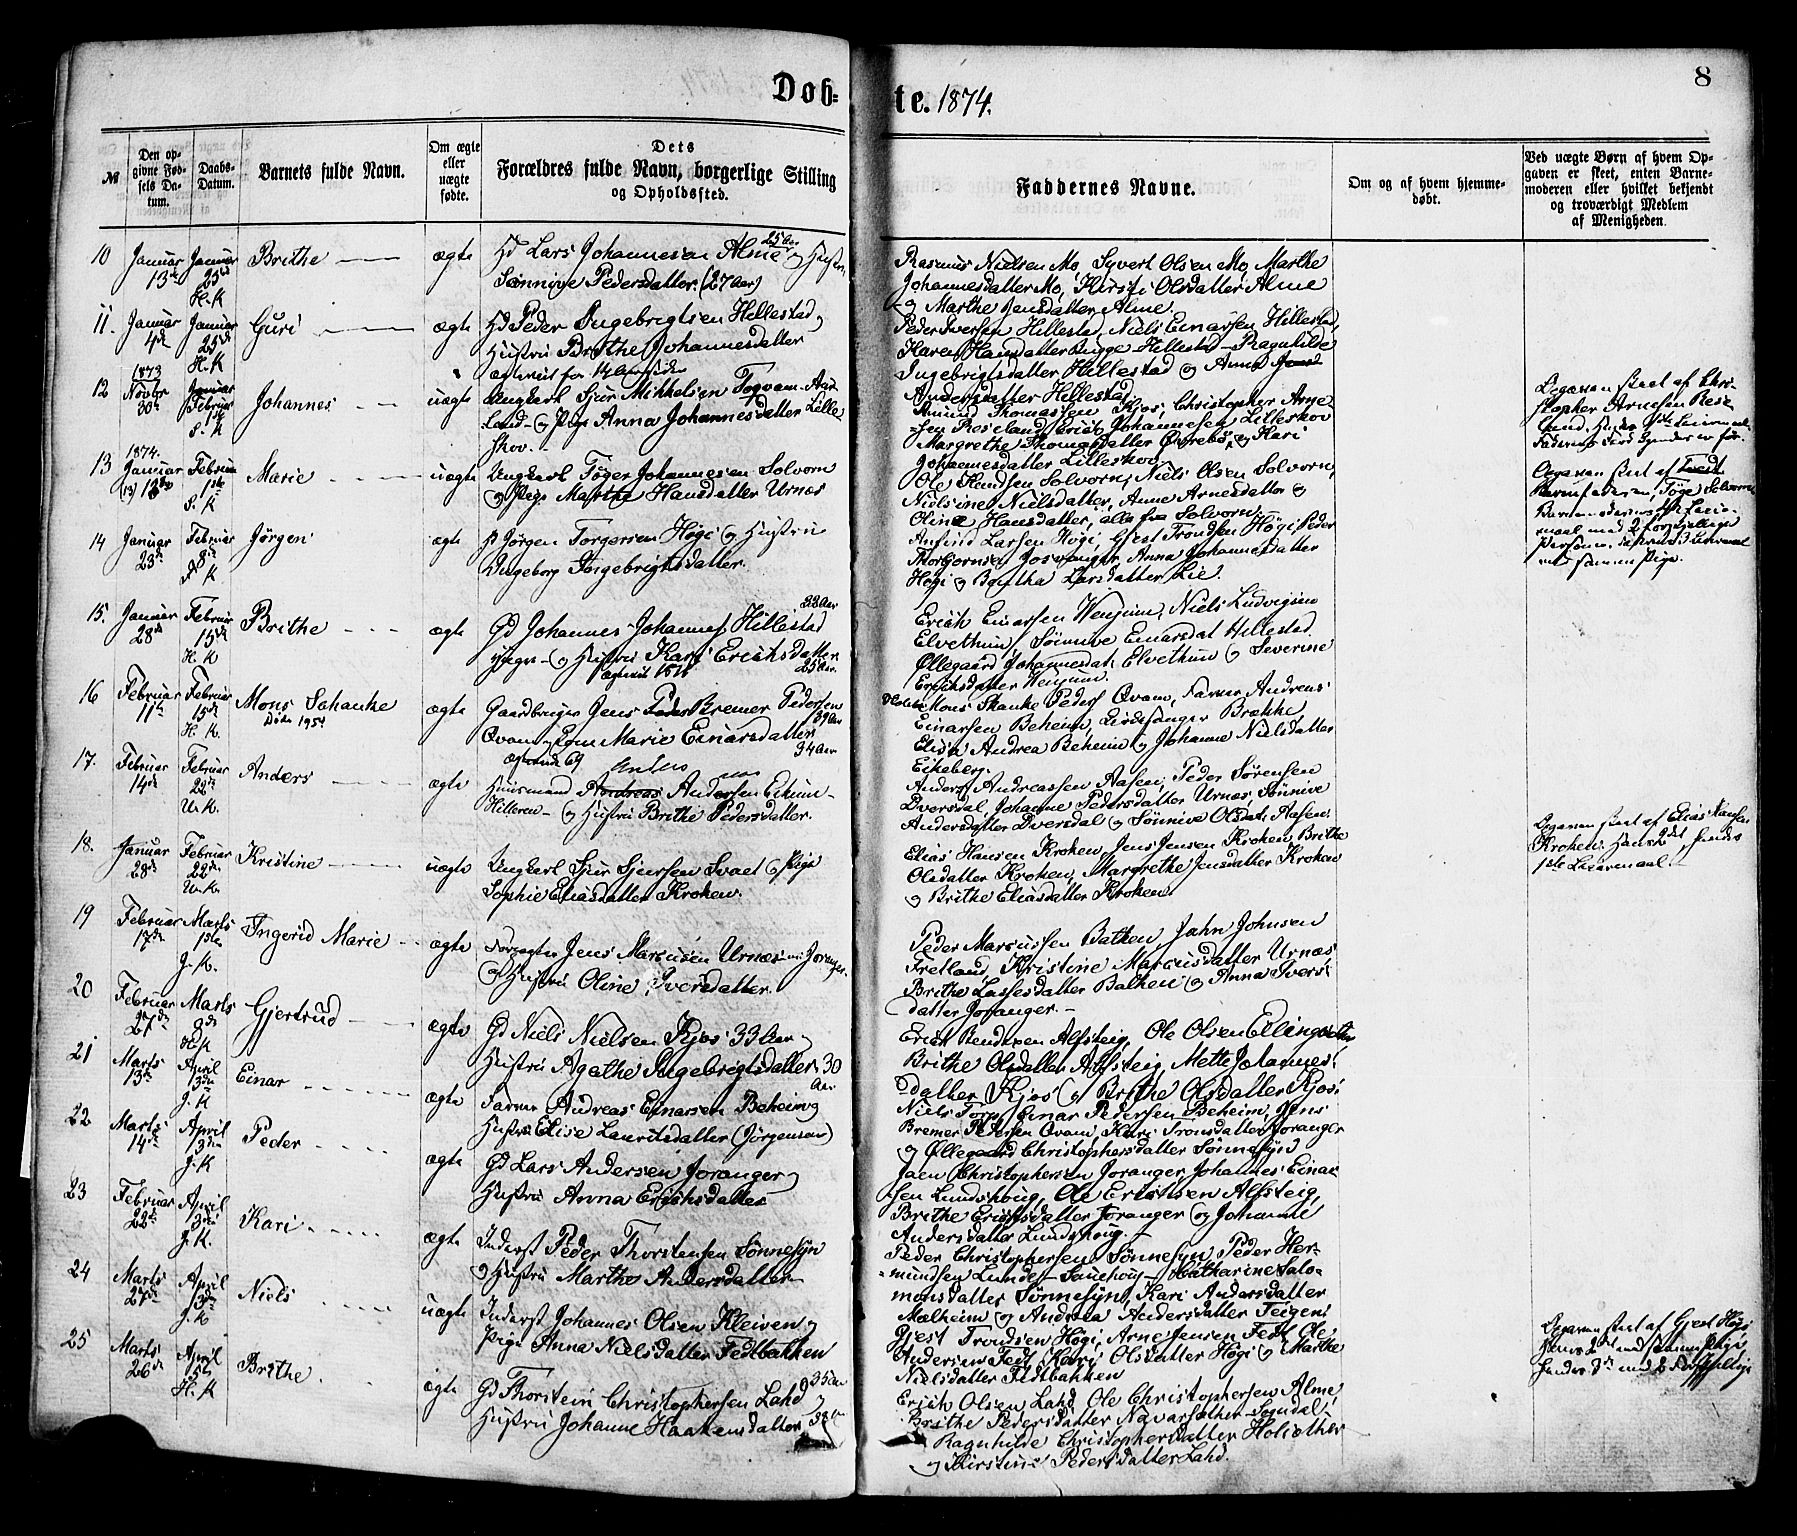 8
Døb-te. 1874.
№
Den op-
givne Fød-
sels Da-
tum.
Daabs-
Datum.
Barnets fulde Navn.
Om ægte
eller
uægte
fødte.
Dets
Forældres fulde Navn, borgerlige Stilling
og Opholdssted.
Faddernes Navne.
Om og af hvem hjemme-
døbt.
Ved uægte Børn af hvem Op-
gaven er skeet, enten Barne-
moderen eller hvilket bekjendt
og troværdigt Medlem
af Menigheden.
10 Januar 13de Januar 25de H. K Brithe ægte Gd Lars Johannesen Alme 25 Aar og Hustru
Sønnive Pedersdatter (27 Aar)
Rasmus Nielsen Mo, Syvert Olsen Mo, Marthe
Johannesdatter Mo, Kirsti Olsdatter Alme
og Marthe Jensdatter Alme.
11. Januar 4de Januar 25de H. K Guri ægte Gd Peder Ingebrigtsen Hillestad og
Hustru Brithe Johannesdatter
Peder Iversen Hillestad, Niels Einarsen Hillestad,
Karen Hansdatter Bugge Hillestad Ragnhilde
Ingebrigtsdatter Hillestad og Anna
Andersdatter Hillestad
12 1873 Novbr 30te Februar 1ste S. K Johannes uægte Ungkarl Sjur Mikkelsen Fogvam Aar-
land og Pige Anna Johannesdatter Lille-
skov.
Amund Thomassen Kjos, Christopher Arne-
sen Roseland, Erich Johannesen Lilleskov
Margrethe Thomasdatter Øvrebø, og Kari
Johannesdatter Lilleskov
Opgaven skeet af Chri-
stopher Arnesen Rose-
land.
13 1874. Januar Februar 1ste S. K Marie uægte Ungkarl Tøger Johannesen Solvorn
og Pige Marthe Hansdatter Urnæs
Ole Knudsen Solvorn, Niels Olsen Solvorn,
Nielsine Nielsdatter, Anne Arnesdatter og
Oline Hansdatter, alle fra Solvorn.
Opgaven skeet af
Barnefaderen, Tøge Solvorn
14 Januar 23de Februar 8de K Jørgen ægte Jørgen Torgersen Høgi og Hustru
Ingeborg Ingebrigtsdatter.
Anfind Larsen Høgi, Gjest Trondsen Høgi, Peder
Thorbjørnsen Josvanger, Anna Johannesdatter
Høgi og Boritha Larsdatter Lie.
15. Januar 28de Februar 15de H. K Brithe ægte Gd Johannes Johannes. Hillestad
og Hustru Kari Erichsdatter 25 Aar.
Erich Einarsen Wenjum, Niels Ludvigsen
Elvethun, Sønnive Einarsdat. Hillestad.
Øllegaard Johannesdat. Elvethun og Severine
Erichsdatter Wenjum.
16 Februar 11te Februar 15de H. K. Mons Schanke
Døde 1951
ægte Gaardbruger Jens Bremer Pedersen
Qvam og Marie Einarsdatter
34 Aar
Mons Skanke Peders Qvam, Farver Andreas
Einarsen Beheim, Kirkesanger Brække
Elisa Andrea Beheim og Johanne Nielsdatter
Eikeberg.
17. Februar 14de Februar 22de U. K. Anders ægte Huusmand Andersen Eikum-
Hilleren og Hustru Brithe Pedersdatter.
Anders Andreassen Aasen, Peder Sørensen
Dversdal, Johanne Pedersdatter Urnæs, Sønnive
Andersdatter Dversdal og Sønnive Olsdat. Aasen.
18. Januar 28de Februar 22de U. K. Kristine uægte Ungkarl Sjur Sjursen Svaet og Pige
Sophie Eliasdatter Kroken.
Elias Hansen Kroken, Jens Jensen Kroken, Brithe
Olsdatter Kroken, Margrethe Jensdatter Kroken
og Brithe Eliasdatter Kroken.
Opgaven skeet af Elias Hansen
Kroken. Hans 2det hendes
1ste Leiermaal.
19 Februar 17de Marts 1ste J. K. Ingerid Marie ægte Jens Marcusen Urnæs Joranger.
og Hustru Oline Iversdatter.
Peder Marcussen Balken, Jahn Johnsen
Fretland, Kristine Marcusdatter Urnæs
Brithe Lassesdatter Balken og Anna Ivers-
datter Joranger.
20 Februar 27de Marts 8de H. K Gjertrud ægte Gd Niels Nielsen Kjos 33 Aar og
Hustru Agathe Ingebrigtsdatter 30
Aar
Erich Bendixen Alfsteig, Ole Olsen
Brithe Olsdatter Alfsteig, Mette Johannes-
datter Kjos og Brithe Olsdatter Kjos.
21 Marts 13de April 3de J. K Einar ægte Farver Andreas Einarsen Beheim og
Hustru Elise Lauritsdatter (Jørgensen)
Niels Torp, Einar Pedersen Beheim, Jens
Bremer Pedersen Qvam, Kari Tronsdatter Joranger
og Øllegaard Christophersdatter Sønnesyn
22 Marts 14de April 3de J. K Peder ægte Gd Lars Andersen Joranger og
Hustru Anna Erichsdatter
Jaen Christophersen Joranger, Johannes Einar-
sen Lundshoug, Ole Erichsen Alfsteig,
Brithe Erichsdatter Joranger og Johanne
Andersdatter Lundshoug.
23 Februar 22de April 3de J. K. Kari ægte Inderst Peder Thorstensen Sønnesyn
og Hustru Marthe Andersdatter
Peder Christophersen Sønnesyn, Peder Her-
mundsen Lunde Sauehoug Catharine Salo-
monsdatter Sønnesyn, Kari Andersdatter
Molheim og Andrea Andersdatter Teigen
24 Marts 27de April 3de J. K Niels uægte Inderst Johannes Olsen Kleiven og
Pige Anna Nielsdatter Fedtbakken
Gjest Trondsen Høgi, Arne Jensen Fedt, Ole
Andersen Fedt, Kari Olsdatter Høgi og Marthe
Nielsdatter Fedtbakken
Opgaven skeet af Gjest Høgi
25 Marts 26de April 5te H. K Brithe ægte Gd Thorstein Christophersen Lahd 35 Aar og
Hustru Johanne Haakensdatter
Erich Olsen Lahd, Ole Christophersen Alme,
Brithe Pedersdatter Navarsether Sogndal
Ragnhilde Christophersdatter Holsether
og Kirstine Pedersdatter Lahd.